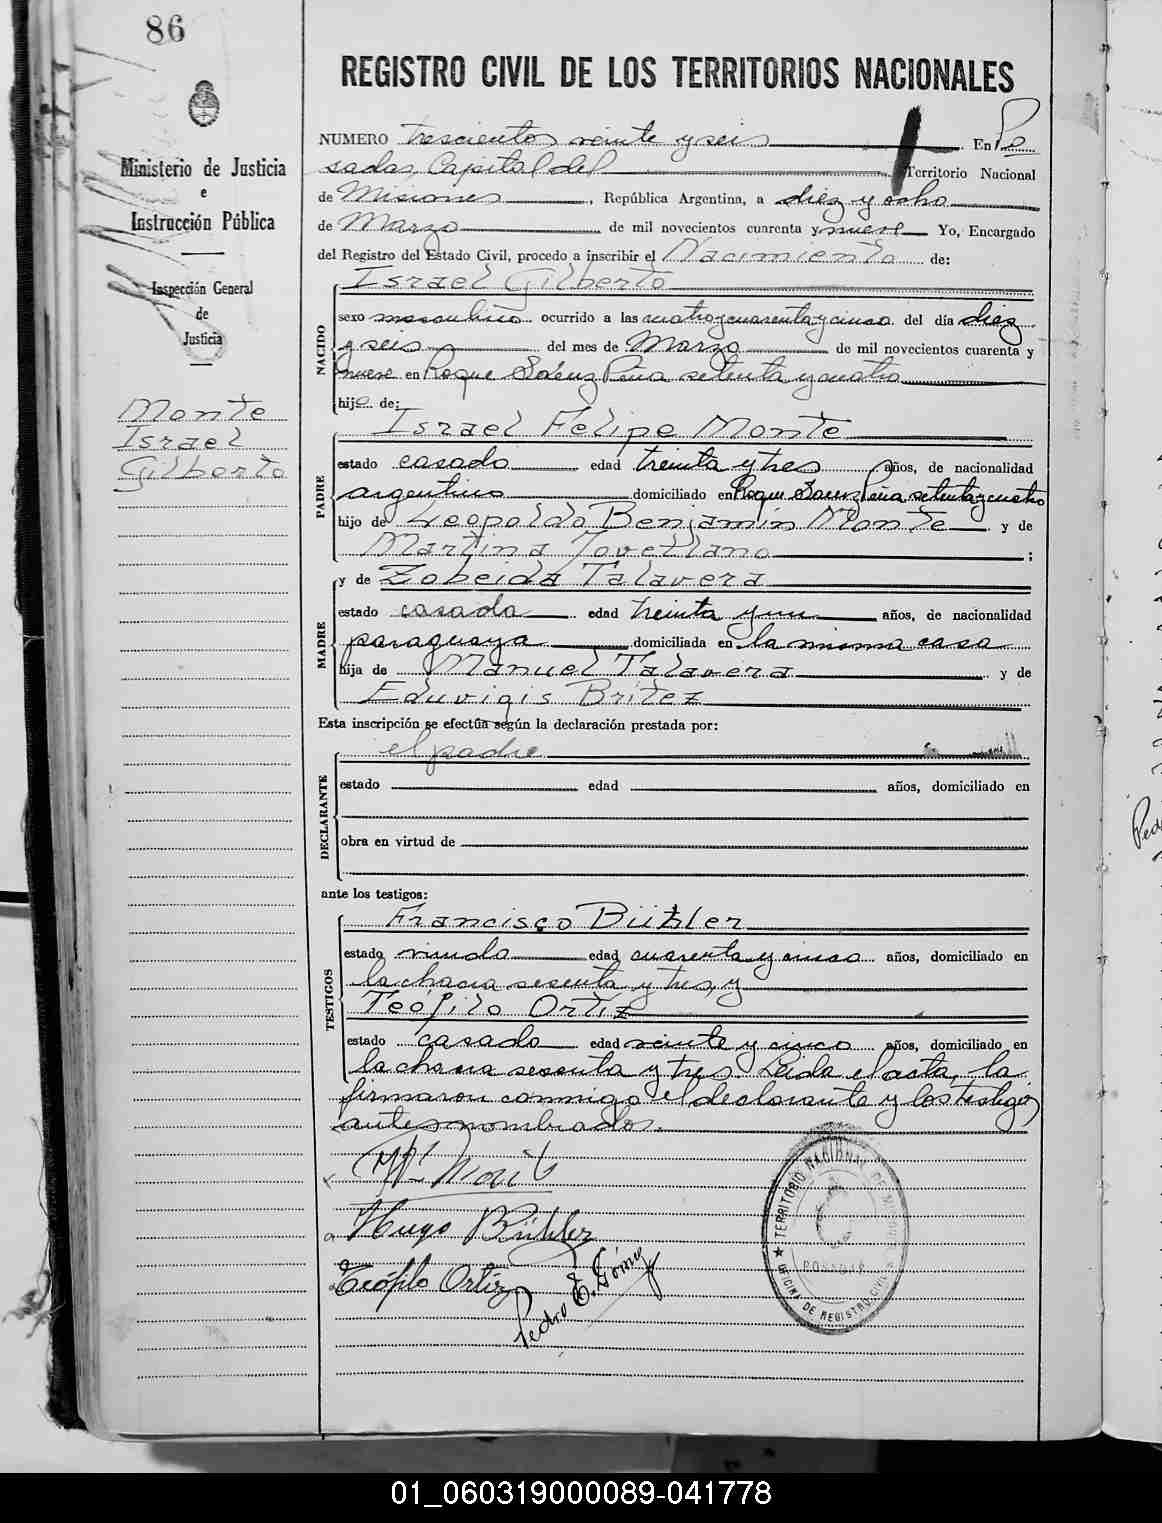 86
REGISTRO CIVIL DE LOS TERRITORIOS NACIONALES
Ministerio de Justicia
e
Instrucción Pública
Inspección General
de
Justicia
Monte
Israel
Gilberto
NUMERO trescientos veinte y seis En Po
sadas, Capital del Territorio Nacional
de Misiones, República Argentina, a diez y ocho
de Marzo de mil novecientos cuarenta y nueve Yo, Encargado
del Registro del Estado Civil, procedo a inscribir el Nacimiento de:
NACIDO
Israel Gilberto
sexo masculino ocurrido a las cuatro y cuarenta y cinco del día diez
y seis del mes de Marzo de mil novecientos cuarenta y
nueve en Roque Saenz Peña setenta y cuatro
hijo de:
PADRE
Israel Felipe Monte
estado casado edad treinta y tres años, de nacionalidad
argentino domiciliado en Roque Saenz Peña setenta y cuatro
hijo de Leopoldo Benjamín Monte y de
Martina Jovellano;
MADRE
y de Zobeida Talavera
estado casada edad treinta y un años, de nacionalidad
paraguaya domiciliada en la misma casa
hija de Manuel Talavera y de
Eduvigis Britez
Esta inscripción se efectúa según la declaración prestada por:
DECLARANTE
el padre
estado edad años, domiciliado en
obra en virtud de
ante los testigos:
TESTIGOS
Francisco Bühler
estado viudo edad cuarenta y cinco años, domiciliado en
la chacra sesenta y tres, y
Teófilo Ortiz
estado casado edad veinte y cinco años, domiciliado en
la chacra sesenta y tres. Leida el acta, la
firmaron conmigo el declarante y los testigos
antes nombrados.
Hugo Bühler
Teófilo Ortiz
Pedro E. Gómez
TERRITORIO NACIONAL DE MISIONES
POSADAS
OFICINA DE REGISTRO CIVIL
01_060319000089-041778